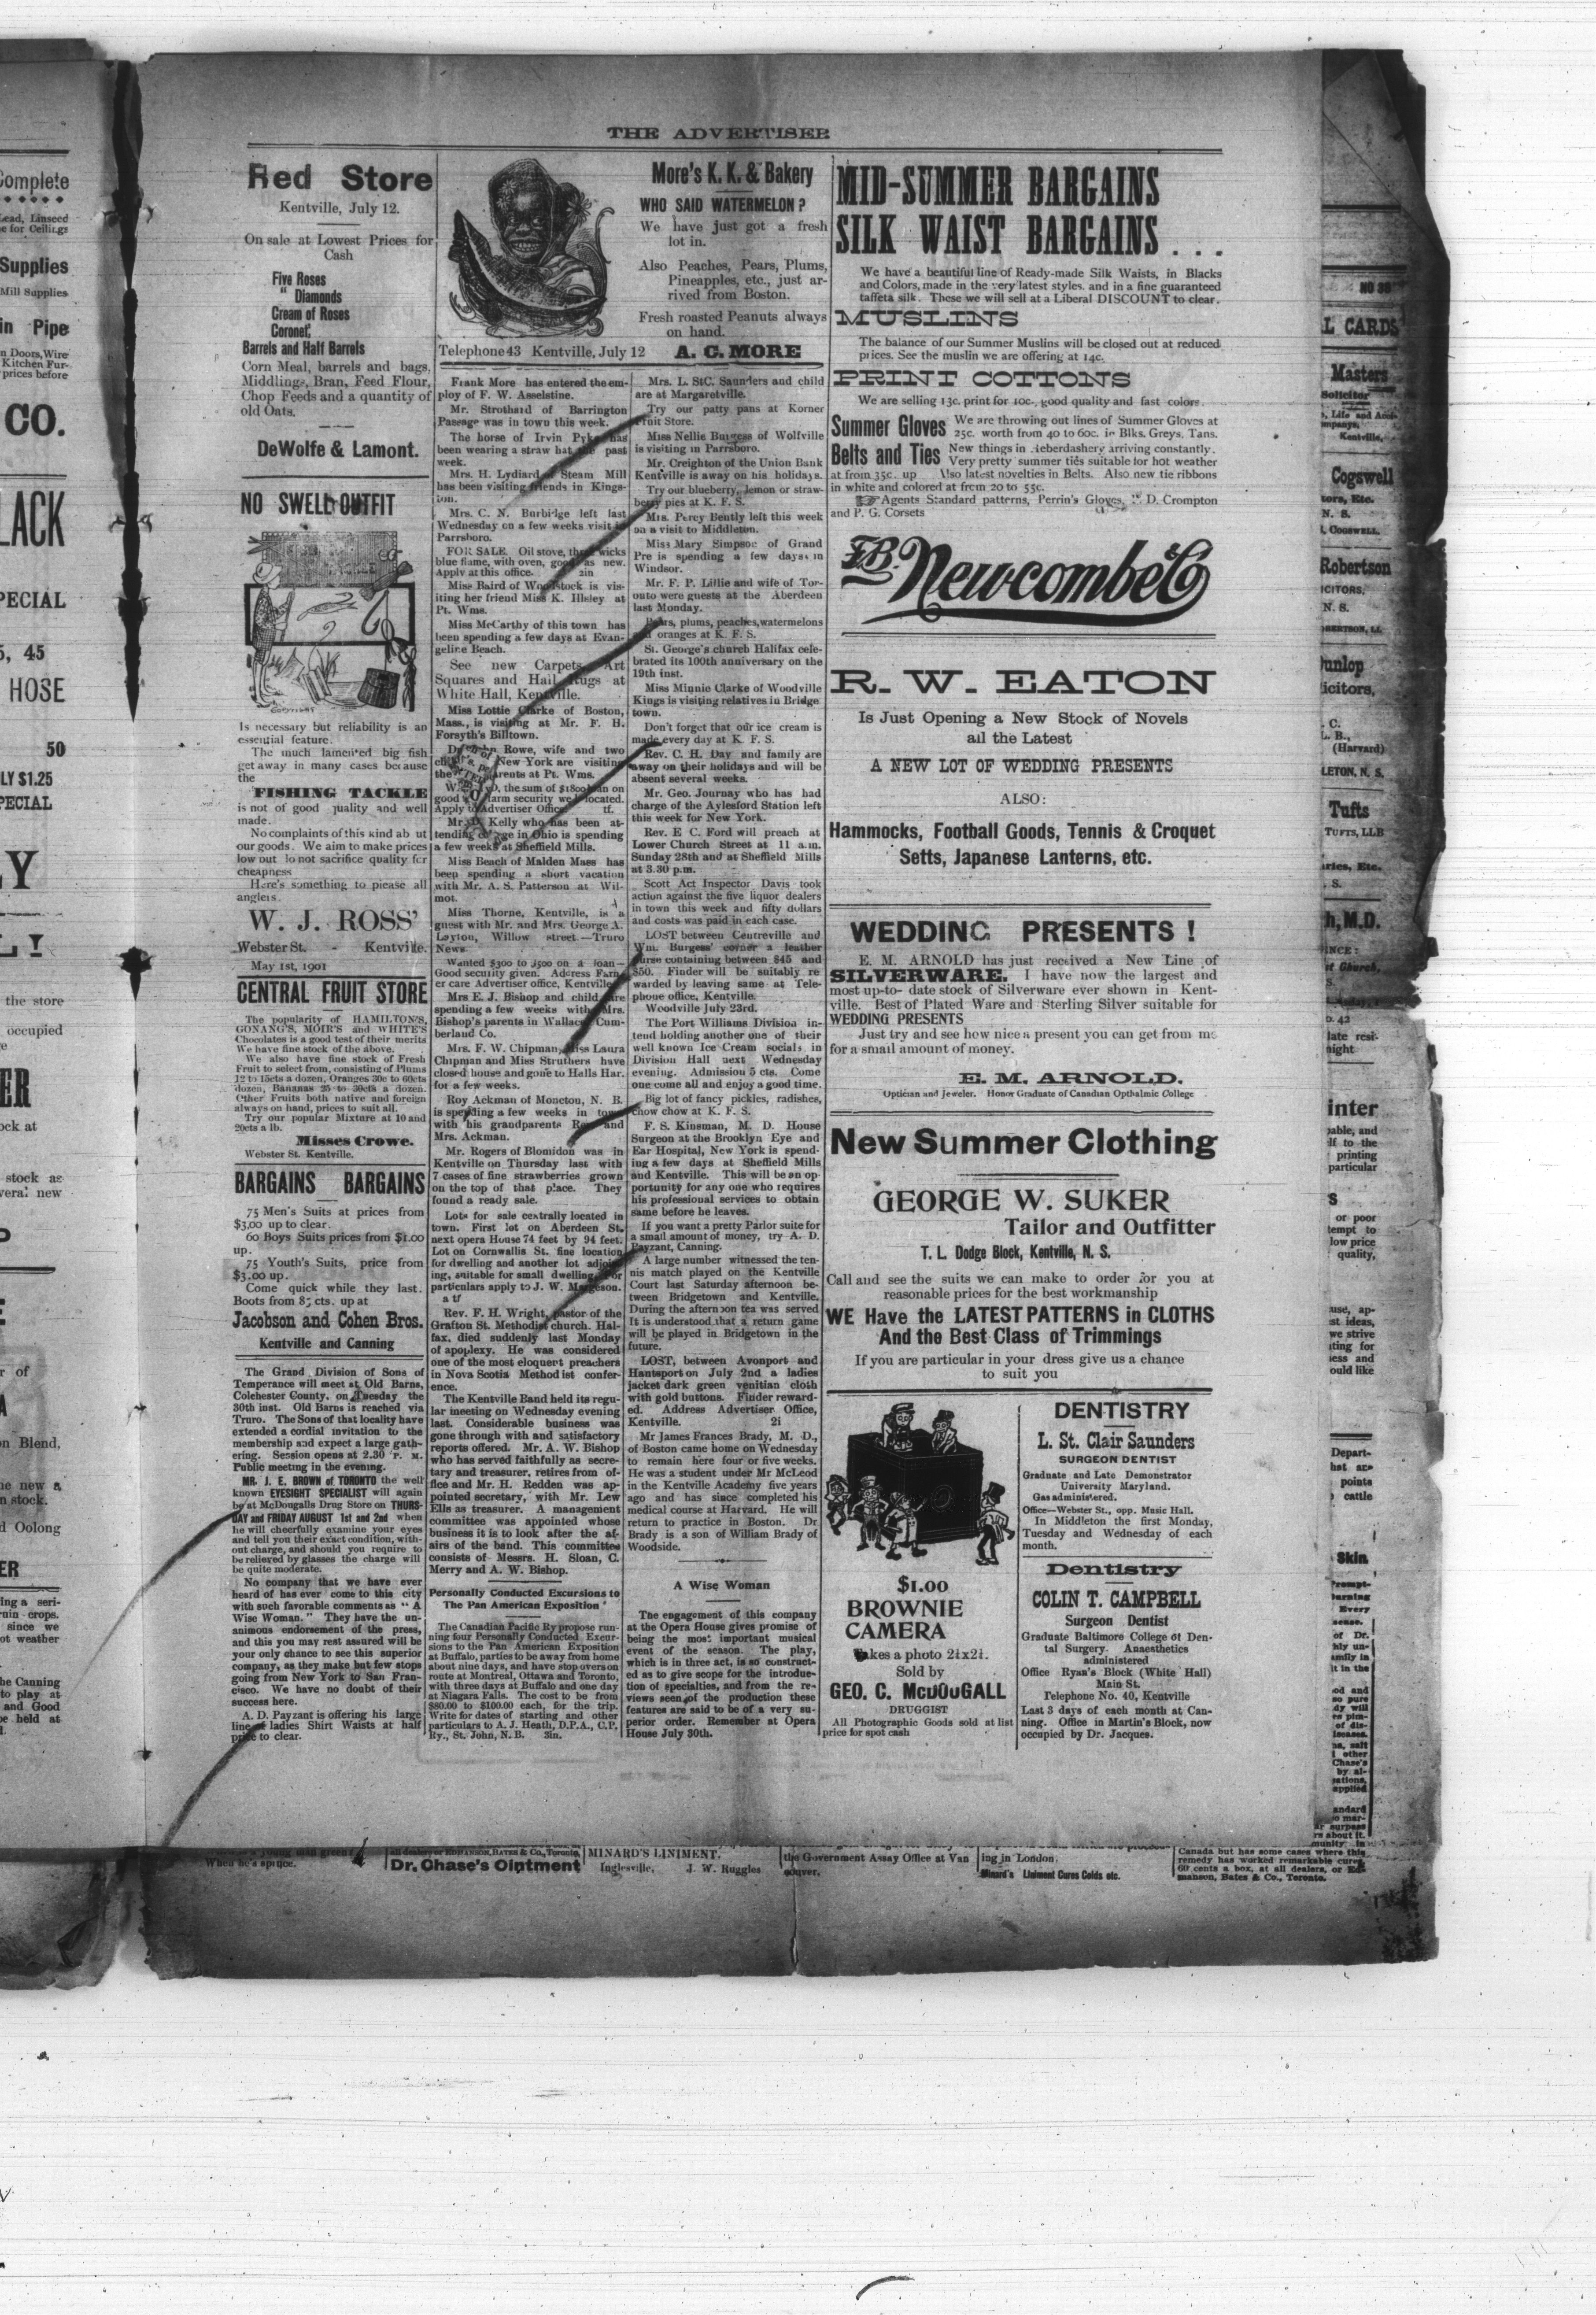 THE ADVERTISER
Red Store
Kentville, July 12.
On sale at Lowest Prices for
Cash
Five Roses
" Diamonds
Cream of Roses
Coronet,
Barrels and Half Barrels
Corn Meal, barrels and bags,
Middlings, Bran, Feed Flour,
Chop Feeds and a quantity of
old Oats.
DeWolfe & Lamont.
NO SWELL OUTFIT
Is necessary but reliability is an
essential feature.
The much lamented big fish
get away in many cases because
the
FISHING TACKLE
is not of good quality and well
made.
No complaints of this kind ab ut
our goods. We aim to make prices
low out lo not sacrifice quality for
cheapness
Here's something to please all
anglers
W. J. ROSS'
Webster St. - Kentville.
May 1st, 1901
CENTRAL FRUIT STORE
The popularity of HAMILTON'S,
GONANG'S, MOIR'S and WHITE'S
Chocolates is a good test of their merits
We have fine stock of the above.
We also have fine stock of Fresh
Fruit to select from, consisting of Plums
12 to 15cts a dozen, Oranges 30c to 60cts
dozen, Bananas 25 to 30cts a dozen.
Other Fruits both native and foreign
always on hand, prices to suit all.
Try our popular Mixture at 10 and
20cts a lb.
Misses Crowe.
Webster St. Kentville.
BARGAINS BARGAINS
75 Men's Suits at prices from
$3,00 up to clear.
60 Boys Suits prices from $1.00
up.
75 Youth's Suits, price from
$3.00 up.
Come quick while they last.
Boots from 85 cts. up at
Jacobson and Cohen Bros.
Kentville and Canning
The Grand Division of Sons of
Temperance will meet at Old Barns,
Colchester County, on Tuesday the
30th inst. Old Barns is reached via
Truro. The Sons of that locality have
extended a cordial invitation to the
membership and expect a large gath-
ering. Session opens at 2.30 P. M.
Public meeting in the evening.
MR. J. E. BROWN of TORONTO the well
known EYESIGHT SPECIALIST will again
be at McDougalls Drug Store on THURS-
DAY and FRIDAY AUGUST 1st and 2nd when
he will cheerfully examine your eyes
and tell you their exact condition, with-
out charge, and should you require to
be relieved by glasses the charge will
be quite moderate.
No company that we have ever
heard of has ever come to this city
with such favorable comments as "A
Wise Woman." They have the un-
animous endorsement of the press,
and this you may rest assured will be
your only chance to see this superior
company, as they make but few stops
going from New York to San Fran-
cisco. We have no doubt of their
success here.
A. D. Payzant is offering his large
line of ladies Shirt Waists at half
price to clear.
More's K. K. & Bakery
WHO SAID WATERMELON?
We have just got a fresh
lot in.
Also Peaches, Pears, Plums,
Pineapples, etc., just ar-
rived from Boston.
Fresh roasted Peanuts always
on hand.
Telephone 43 Kentville, July 12 A. C. MORE
Frank More has entered the em-
ploy of F. W. Asselstine.
Mr. Strothard of Barrington
Passage was in town this week.
The horse of Irvin Pyke has
been wearing a straw hat the past
week.
Mrs. H. Lydiard of Steam Mill
has been visiting friends in Kings-
ton.
Mrs. C. N. Burbidge left last
Wednesday on a few weeks visit to
Parrsboro.
FOR SALE. Oil stove, three wicks
blue flame, with oven, good as new.
Apply at this office. 2in
Miss Baird of Woodstock is vis-
iting her friend Miss K. Illsley at
Pt. Wms.
Miss McCarthy of this town has
been spending a few days at Evan-
geline Beach.
See new Carpets Art
Squares and Hall Rugs at
White Hall, Kentville.
Miss Lottie Clarke of Boston,
Mass., is visiting at Mr. F. H.
Forsyth's Billtown.
Rowe, wife and two
New York are visiting
parents at Pt. Wms.
the sum of $1800 loan on
good farm security well located.
Apply to Advertiser Office. tf.
Mr. Kelly who has been at-
tending college in Ohio is spending
a few weeks at Sheffield Mills.
Miss Beach of Malden Mass has
been spending a short vacation
with Mr. A. S. Patterson at Wil-
mot.
Miss Thorne, Kentville, is a
guest with Mr. and Mrs. George A.
Layton, Willow street.—Truro
News
Wanted $300 to $500 on a loan—
Good security given. Address Farm
er care Advertiser office, Kentville
Mrs E. J. Bishop and child are
spending a few weeks with Mrs.
Bishop's parents in Wallace Cum-
berland Co.
Mrs. F. W. Chipman, Miss Laura
Chipman and Miss Struthers have
closed house and gone to Halls Har.
for a few weeks.
Roy Ackman of Moncton, N. B.
is spending a few weeks in town
with his grandparents Rev and
Mrs. Ackman.
Mr. Rogers of Blomidon was in
Kentville on Thursday last with
7 cases of fine strawberries grown
on the top of that place. They
found a ready sale.
Lots for sale centrally located in
town. First lot on Aberdeen St.
next opera House 74 feet by 94 feet.
Lot on Cornwallis St. fine location
for dwelling and another lot adjoin-
ing, suitable for small dwelling. For
particulars apply to J. W. Margeson.
a tf
Rev. F. H. Wright, pastor of the
Grafton St. Methodist church. Hal-
fax, died suddenly last Monday
of apoplexy. He was considered
one of the most eloquent preachers
in Nova Scotia Methodist confer-
ence.
The Kentville Band held its regu-
lar meeting on Wednesday evening
last. Considerable business was
gone through with and satisfactory
reports offered. Mr. A. W. Bishop
who has served faithfully as secre-
tary and treasurer, retires from of-
fice and Mr. H. Redden was ap-
pointed secretary, with Mr. Lew
Ells as treasurer. A management
committee was appointed whose
business it is to look after the af-
airs of the band. This committee
consists of Messrs. H. Sloan, C.
Merry and A. W. Bishop.
Personally Conducted Excursions to
The Pan American Exposition
The Canadian Pacific Ry propose run-
ning four Personally Conducted Excur-
sions to the Pan American Exposition
at Buffalo, parties to be away from home
about nine days, and have stop overs on
route at Montreal, Ottawa and Toronto,
with three days at Buffalo and one day
at Niagara Falls. The cost to be from
$80.00 to $100.00 each, for the trip.
Write for dates of starting and other
particulars to A. J. Heath, D.P.A., C.P,
Ry., St. John, N. B. 3in.
Mrs. L. StC. Saunders and child
are at Margaretville.
Try our patty pans at Korner
Fruit Store.
Miss Nellie Burgess of Wolfville
is visiting in Parrsboro.
Mr. Creighton of the Union Bank
Kentville is away on his holidays.
Try our blueberry, lemon or straw-
berry pies at K. F. S.
Mrs. Percy Bently left this week
on a visit to Middleton.
Miss Mary Simpson of Grand
Pre is spending a few days in
Windsor.
Mr. F. P. Lillie and wife of Tor-
onto were guests at the Aberdeen
last Monday.
Pears, plums, peaches, watermelons
and oranges at K. F. S.
St. George's church Halifax cele-
brated its 100th anniversary on the
19th inst.
Miss Minnie Clarke of Woodville
Kings is visiting relatives in Bridge
town.
Don't forget that our ice cream is
made every day at K. F. S.
Rev. C. H. Day and family are
away on their holidays and will be
absent several weeks.
Mr. Geo. Journay who has had
charge of the Aylesford Station left
this week for New York.
Rev. E C. Ford will preach at
Lower Church Street at 11 a.m.
Sunday 28th and at Sheffield Mills
at 3.30 p.m.
Scott Act Inspector Davis took
action against the five liquor dealers
in town this week and fifty dollars
and costs was paid in each case.
LOST between Centreville and
Wm. Burgess' corner a leather
purse containing between $45 and
$50. Finder will be suitably re
warded by leaving same at Tele-
phone office, Kentville.
Woodville July 23rd.
The Port Williams Division in-
tend holding another one of their
well known Ice Cream socials in
Division Hall next Wednesday
evening. Admission 5 cts. Come
one come all and enjoy a good time.
Big lot of fancy pickles, radishes,
chow chow at K. F. S.
F. S. Kinsman, M. D. House
Surgeon at the Brooklyn Eye and
Ear Hospital, New York is spend-
ing a few days at Sheffield Mills
and Kentville. This will be an op-
portunity for any one who requires
his professional services to obtain
same before he leaves.
If you want a pretty Parlor suite for
a small amount of money, try A. D.
Payzant, Canning.
A large number witnessed the ten-
nis match played on the Kentville
Court last Saturday afternoon be-
tween Bridgetown and Kentville.
During the afternoon tea was served
It is understood that a return game
will be played in Bridgetown in the
future.
LOST, between Avonport and
Hantsport on July 2nd a ladies
jacket dark green venitian cloth
with gold buttons. Finder reward-
ed. Address Advertiser Office,
Kentville. 2i
Mr James Frances Brady, M. D.,
of Boston came home on Wednesday
to remain here four or five weeks.
He was a student under Mr McLeod
in the Kentville Academy five years
ago and has since completed his
medical course at Harvard. He will
return to practice in Boston. Dr
Brady is a son of William Brady of
Woodside.
A Wise Woman
The engagement of this company
at the Opera House gives promise of
being the most important musical
event of the season. The play,
which is in three act, is so construct-
ed as to give scope for the introduc-
tion of specialties, and from the re-
views seen of the production these
features are said to be of a very su-
perior order. Remember at Opera
House July 30th.
MID-SUMMER BARGAINS
SILK WAIST BARGAINS . . .
We have a beautiful line of Ready-made Silk Waists, in Blacks
and Colors, made in the very latest styles, and in a fine guaranteed
taffeta silk. These we will sell at a Liberal DISCOUNT to clear.
MUSLINS
The balance of our Summer Muslins will be closed out at reduced
prices. See the muslin we are offering at 14c.
PRINT COTTONS
We are selling 13c. print for 10c., good quality and fast colors.
Summer Gloves We are throwing out lines of Summer Gloves at
25c. worth from 40 to 60c. in Blks. Greys, Tans.
Belts and Ties New things in Neberdashery arriving constantly.
Very pretty summer ties suitable for hot weather
at from 35c. up Also latest novelties in Belts. Also new tie ribbons
in white and colored at from 20 to 55c.
Agents Standard patterns, Perrin's Gloves, D. Crompton
and P. G. Corsets
F.B. Newcombe & Co
R. W. EATON
Is Just Opening a New Stock of Novels
all the Latest
A NEW LOT OF WEDDING PRESENTS
ALSO:
Hammocks, Football Goods, Tennis & Croquet
Setts, Japanese Lanterns, etc.
WEDDING PRESENTS !
E. M. ARNOLD has just received a New Line of
SILVERWARE. I have now the largest and
most up-to- date stock of Silverware ever shown in Kent-
ville. Best of Plated Ware and Sterling Silver suitable for
WEDDING PRESENTS
Just try and see how nice a present you can get from me
for a small amount of money.
E. M. ARNOLD.
Optician and Jeweler. Honor Graduate of Canadian Opthalmic College
New Summer Clothing
GEORGE W. SUKER
Tailor and Outfitter
T. L. Dodge Block, Kentville, N. S.
Call and see the suits we can make to order for you at
reasonable prices for the best workmanship
WE Have the LATEST PATTERNS in CLOTHS
And the Best Class of Trimmings
If you are particular in your dress give us a chance
to suit you
$1.00
BROWNIE
CAMERA
Takes a photo 2¼x2¼.
Sold by
GEO. C. McDOUGALL
DRUGGIST
All Photographic Goods sold at list
price for spot cash
DENTISTRY
L. St. Clair Saunders
SURGEON DENTIST
Graduate and Late Demonstrator
University Maryland.
Gas administered.
Office—Webster St., opp. Music Hall.
In Middleton the first Monday,
Tuesday and Wednesday of each
month.
Dentistry
COLIN T. CAMPBELL
Surgeon Dentist
Graduate Baltimore College of Den-
tal Surgery. Anaesthetics
administered
Office Ryan's Block (White Hall)
Main St.
Telephone No. 40, Kentville
Last 3 days of each month at Can-
ning. Office in Martin's Block, now
occupied by Dr. Jacques.
When he's spruce.
Dr. Chase's Ointment
MINARD'S LINIMENT.
Inglesville, J. W. Ruggles
the Government Assay Office at Van
couver.
ing in London.
Minard's Liniment Cures Colds etc.
Canada but has some cases where this
remedy has worked remarkable cures
60 cents a box, at all dealers, or Ed-
manson, Bates & Co., Toronto.